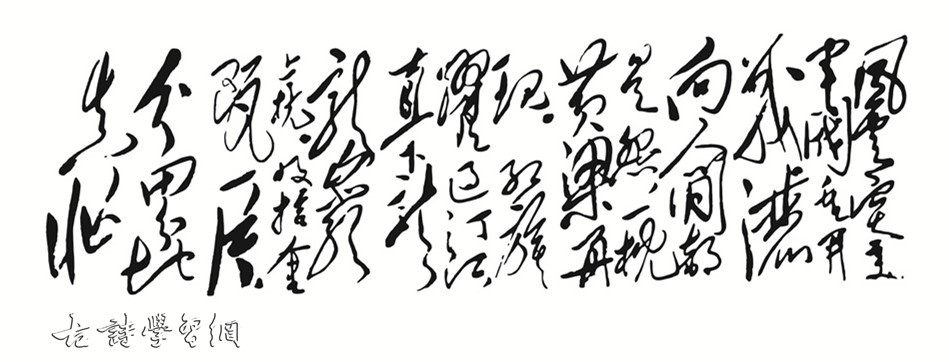 风云突变
军阀重开
战洒
向人间都
是怨一枕
黄粱再
现。红旗
躍过汀江
直下
龙岩
上杭。收拾金
瓯一片
分田分地
真忙
古詩學習網